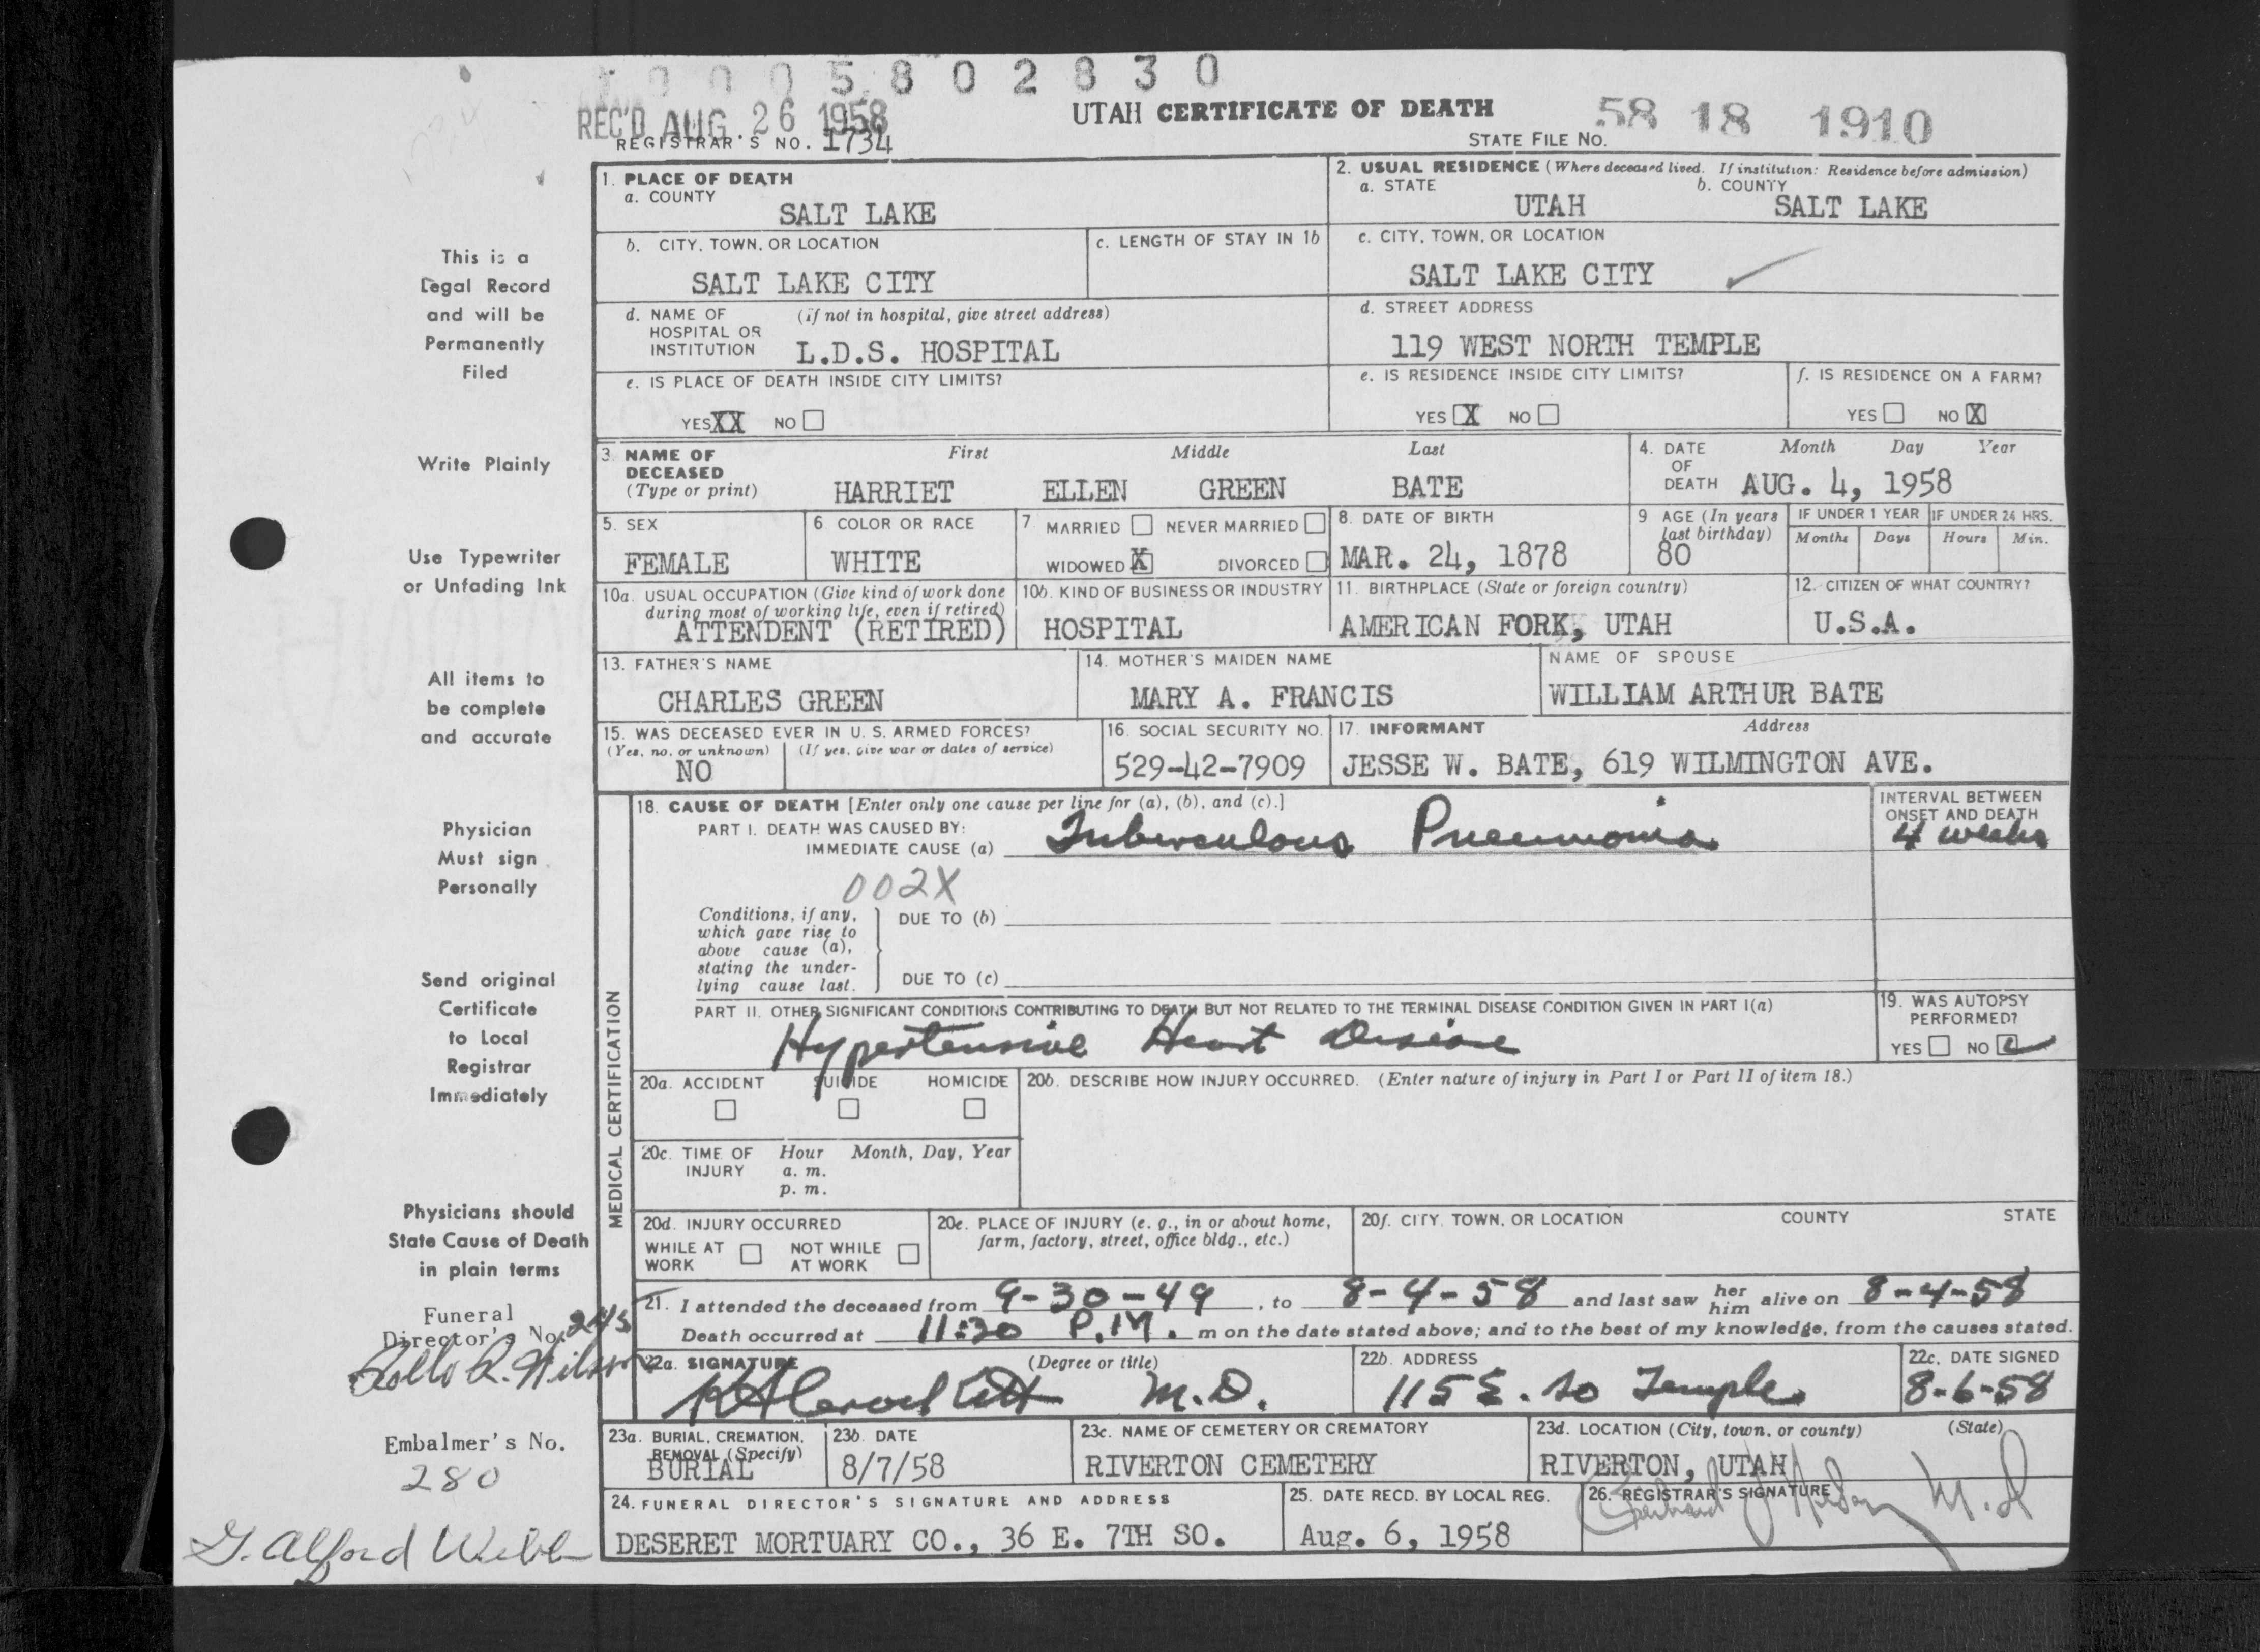 0 0 0 5 8 0 2 8 3 0
REC'D AUG. 26 1958
UTAH CERTIFICATE OF DEATH
58 18 1910
REGISTRAR'S NO. 1734
STATE FILE NO.
1. PLACE OF DEATH
a. COUNTY
SALT LAKE
2. USUAL RESIDENCE (Where deceased lived. If institution: Residence before admission)
a. STATE
UTAH
b. COUNTY
SALT LAKE
b. CITY, TOWN, OR LOCATION
SALT LAKE CITY
c. LENGTH OF STAY IN 1b
c. CITY, TOWN, OR LOCATION
SALT LAKE CITY
d. NAME OF (if not in hospital, give street address)
HOSPITAL OR
INSTITUTION L.D.S. HOSPITAL
d. STREET ADDRESS
119 WEST NORTH TEMPLE
e. IS PLACE OF DEATH INSIDE CITY LIMITS?
YES XX NO
e. IS RESIDENCE INSIDE CITY LIMITS?
YES X NO
f. IS RESIDENCE ON A FARM?
YES NO X
3. NAME OF DECEASED
(Type or print)
First Middle Last
HARRIET ELLEN GREEN BATE
4. DATE OF DEATH
Month Day Year
AUG. 4, 1958
5. SEX
FEMALE
6. COLOR OR RACE
WHITE
7. MARRIED NEVER MARRIED
WIDOWED X DIVORCED
8. DATE OF BIRTH
MAR. 24, 1878
9 AGE (In years
last birthday)
80
IF UNDER 1 YEAR
Months Days
IF UNDER 24 HRS.
Hours Min.
10a. USUAL OCCUPATION (Give kind of work done
during most of working life, even if retired)
ATTENDENT (RETIRED)
10b. KIND OF BUSINESS OR INDUSTRY
HOSPITAL
11. BIRTHPLACE (State or foreign country)
AMERICAN FORK, UTAH
12. CITIZEN OF WHAT COUNTRY?
U.S.A.
13. FATHER'S NAME
CHARLES GREEN
14. MOTHER'S MAIDEN NAME
MARY A. FRANCIS
NAME OF SPOUSE
WILLIAM ARTHUR BATE
15. WAS DECEASED EVER IN U. S. ARMED FORCES?
(Yes, no, or unknown) (If yes, give war or dates of service)
NO
16. SOCIAL SECURITY NO.
529-42-7909
17. INFORMANT Address
JESSE W. BATE, 619 WILMINGTON AVE.
MEDICAL CERTIFICATION
18. CAUSE OF DEATH [Enter only one cause per line for (a), (b), and (c).]
PART I. DEATH WAS CAUSED BY:
IMMEDIATE CAUSE (a) Tuberculous Pneumonia
INTERVAL BETWEEN
ONSET AND DEATH
4 weeks
002X
Conditions, if any,
which gave rise to
above cause (a),
stating the under-
lying cause last.
DUE TO (b)
DUE TO (c)
PART II. OTHER SIGNIFICANT CONDITIONS CONTRIBUTING TO DEATH BUT NOT RELATED TO THE TERMINAL DISEASE CONDITION GIVEN IN PART I(a)
Hypertensive Heart Disease
19. WAS AUTOPSY
PERFORMED?
YES NO
20a. ACCIDENT SUICIDE HOMICIDE
20b. DESCRIBE HOW INJURY OCCURRED. (Enter nature of injury in Part I or Part II of item 18.)
20c. TIME OF INJURY
Hour Month, Day, Year
a. m.
p. m.
20d. INJURY OCCURRED
WHILE AT WORK NOT WHILE AT WORK
20e. PLACE OF INJURY (e. g., in or about home,
farm, factory, street, office bldg., etc.)
20f. CITY, TOWN, OR LOCATION COUNTY STATE
21. I attended the deceased from 9-30-49, to 8-4-58 and last saw her him alive on 8-4-58
Death occurred at 11:30 P.M. m on the date stated above; and to the best of my knowledge, from the causes stated.
22a. SIGNATURE (Degree or title)
M.D.
22b. ADDRESS
115 E. So Temple
22c. DATE SIGNED
8-6-58
23a. BURIAL, CREMATION,
REMOVAL (Specify)
BURIAL
23b. DATE
8/7/58
23c. NAME OF CEMETERY OR CREMATORY
RIVERTON CEMETERY
23d. LOCATION (City, town, or county) (State)
RIVERTON, UTAH
24. FUNERAL DIRECTOR'S SIGNATURE AND ADDRESS
DESERET MORTUARY CO., 36 E. 7TH SO.
25. DATE RECD. BY LOCAL REG.
Aug. 6, 1958
26. REGISTRAR'S SIGNATURE
M.D
This is a
Legal Record
and will be
Permanently
Filed
Write Plainly
Use Typewriter
or Unfading Ink
All items to
be complete
and accurate
Physician
Must sign
Personally
Send original
Certificate
to Local
Registrar
Immediately
Physicians should
State Cause of Death
in plain terms
Funeral
Director's No.
Embalmer's No.
280
G. Alford Webb